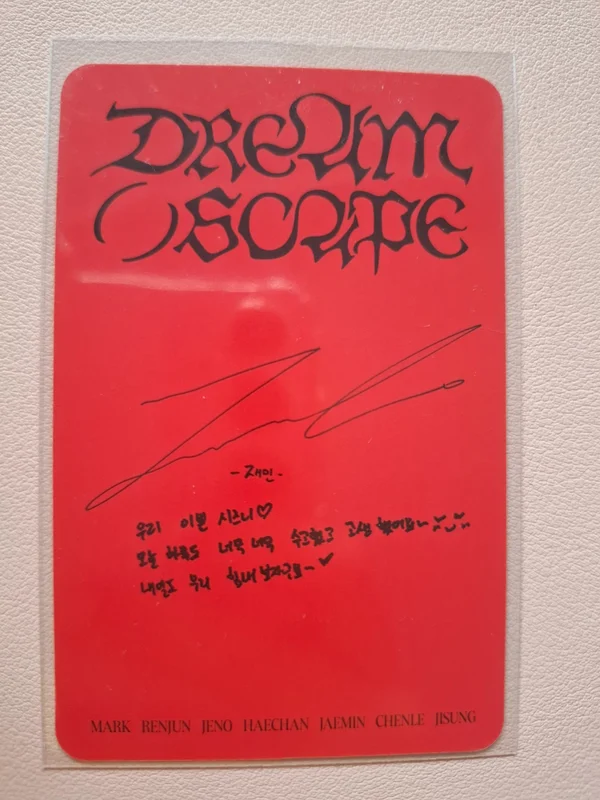 DREAM
( )SCAPE
-재민-
우리 이쁜 시즈니♡
오늘 하루도 너무 너무 수고했고 고생 했어요~
내일도 우리 힘내 보자구요~
MARK RENJUN JENO HAECHAN JAEMIN CHENLE JISUNG